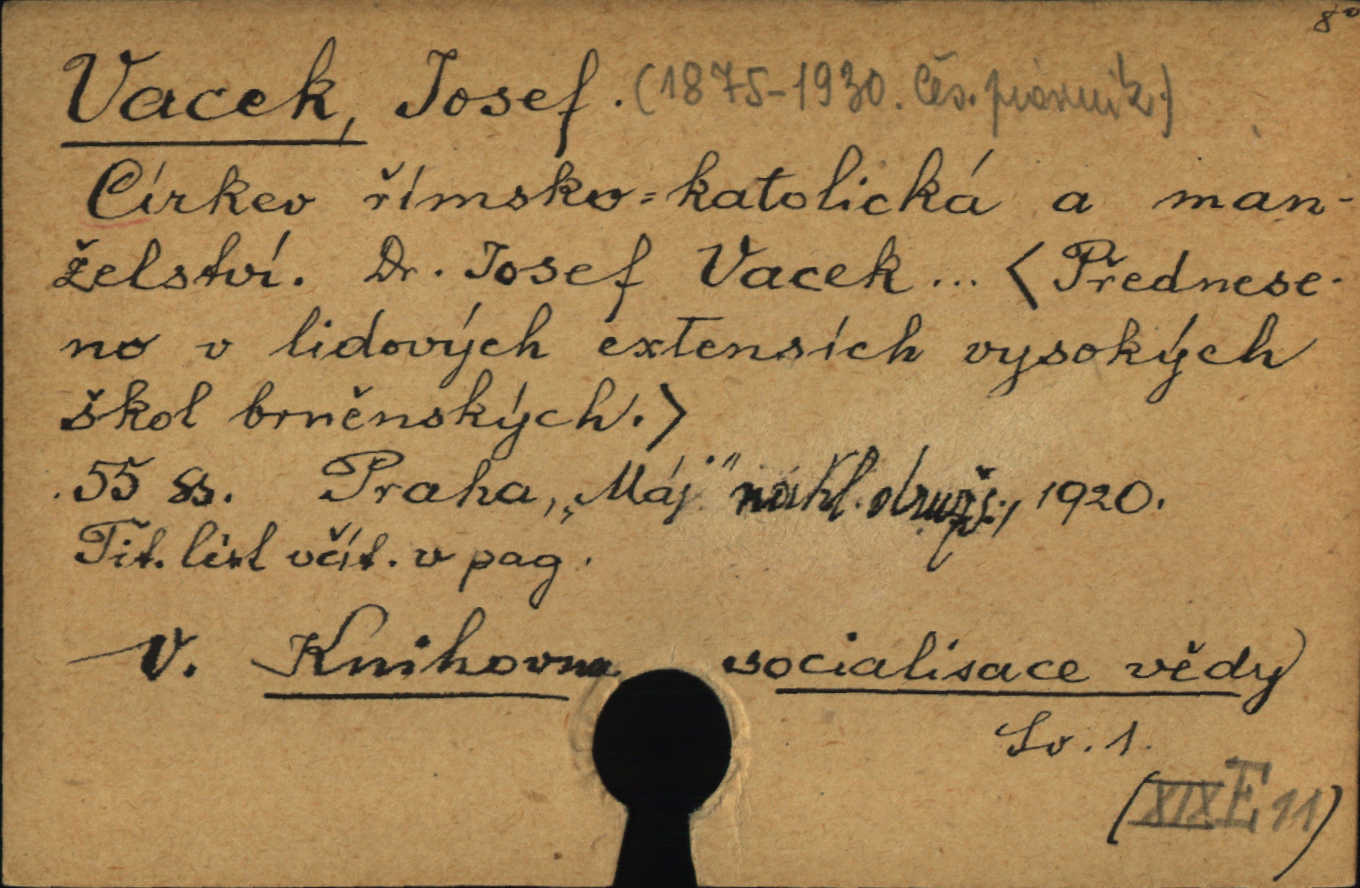 8°
Vacek, Josef. (1875-1930. Čes. právník.)
Církev římsko=katolická a man-
želství. Dr. Josef Vacek ... <Přednese-
no v lidových extensích vysokých
škol brněnských.>
55 ss. Praha, „Máj" nakl. druž., 1920.
Tit. list včít. v pag.
V. Knihovna socialisace vědy
Sv. 1.
(XIX E 11)